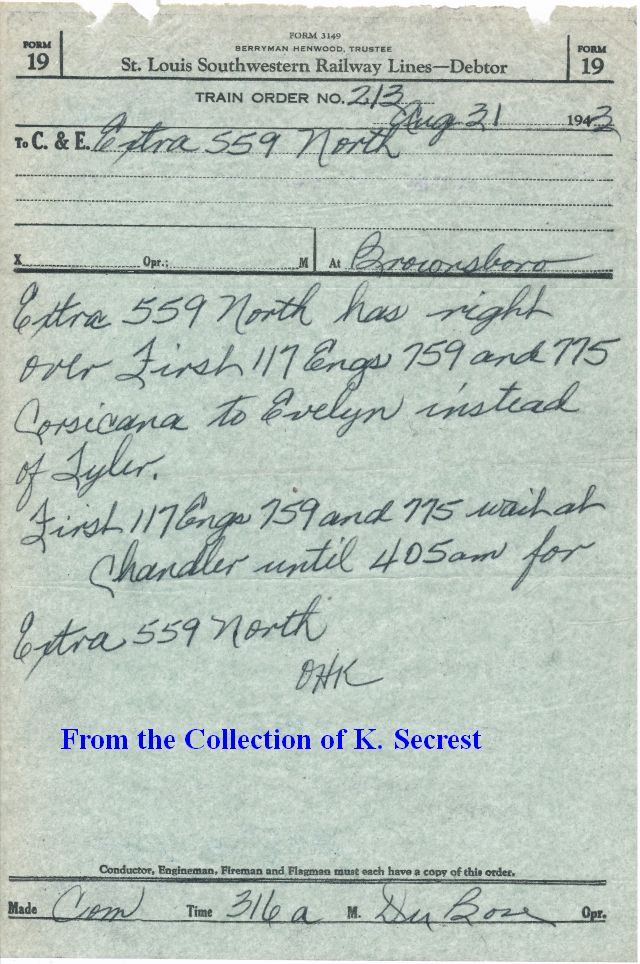 FORM 3149
BERRYMAN HENWOOD, TRUSTEE
FORM 19 St. Louis Southwestern Railway Lines—Debtor FORM 19
TRAIN ORDER NO. 213
Aug 31 1943
To C. & E. Extra 559 North
X Opr.; M At Brownsboro
Extra 559 North has right
over First 117 Engs 759 and 775
Corsicana to Evelyn instead
of Tyler.
First 117 Engs 759 and 775 wait at
Chandler until 405am for
Extra 559 North
OHK
From the Collection of K. Secrest
Conductor, Engineman, Fireman and Flagman must each have a copy of this order.
Made Com Time 316 a M. Du Bose Opr.